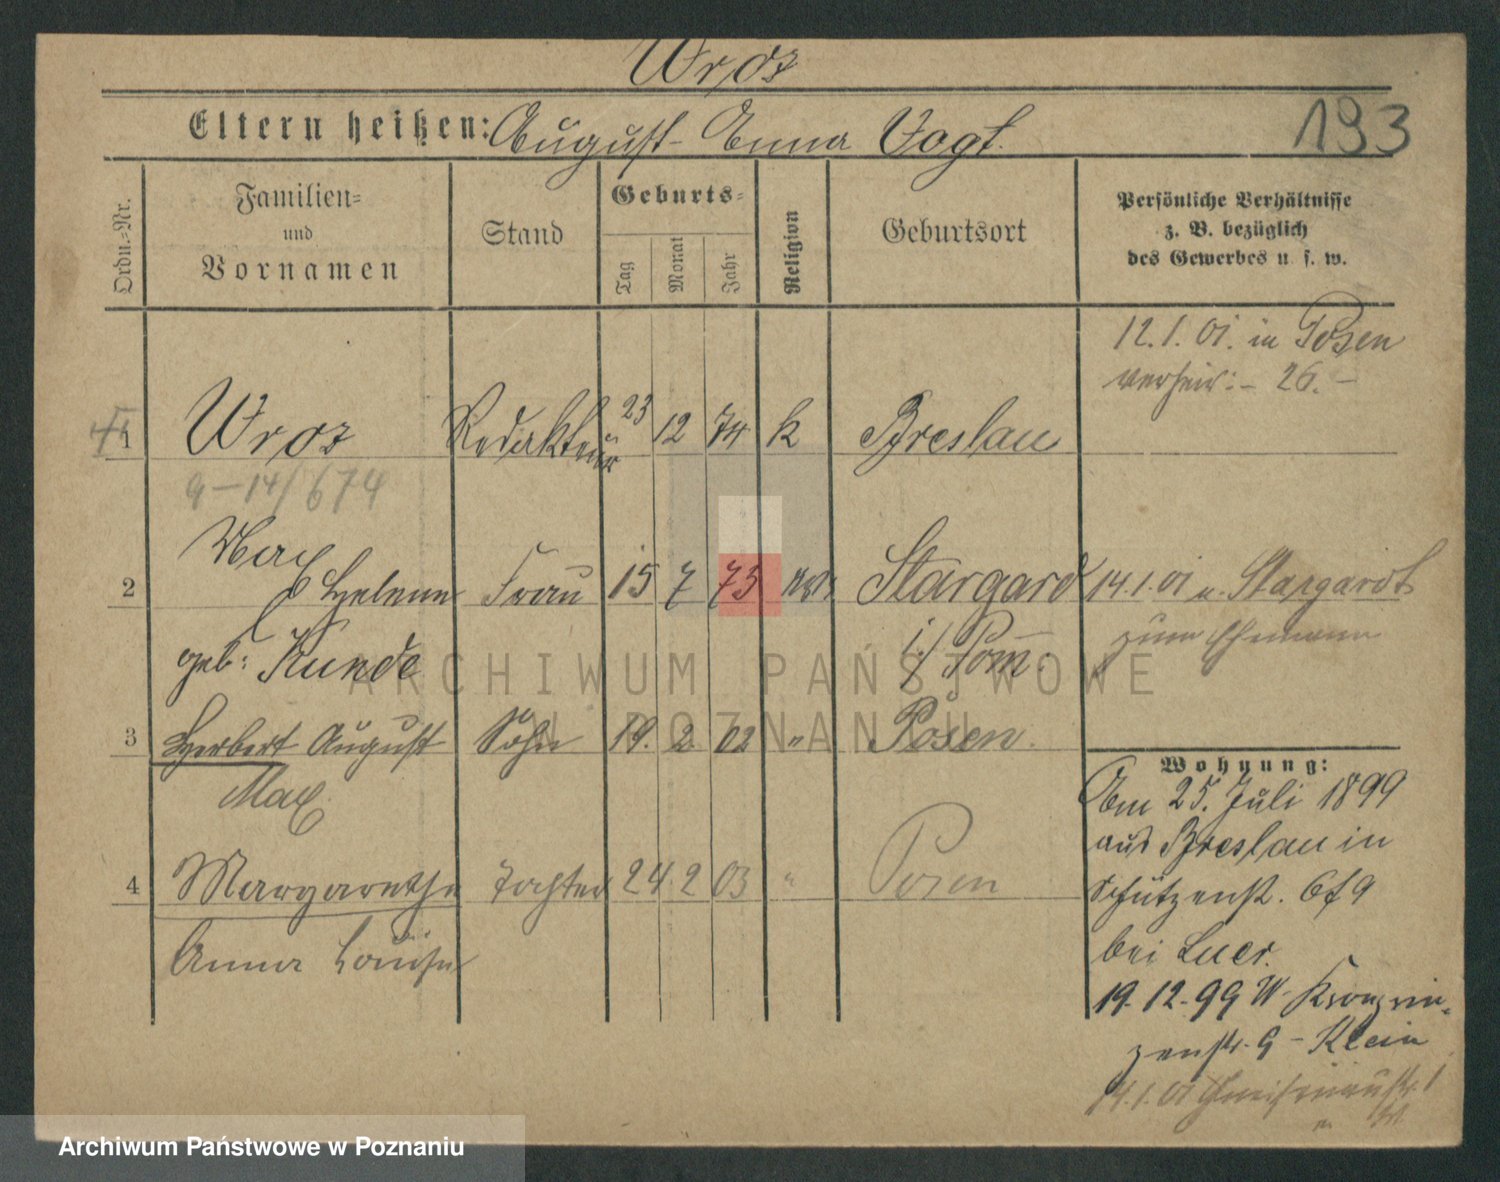 Wroz
Eltern heißen: August - Anna Vogt.
193
Ordn.-Nr.
Familien- und Vornamen
Stand
Geburts-
Tag
Monat
Jahr
Religion
Geburtsort
Persönliche Verhältnisse
z. B. bezüglich
des Gewerbes u. s. w.
12.1.01. in Posen
verheir: - 26. -
1 Wroz Redakteur 23 12 74 k Breslau
9-14/674
Max
2 Helene Frau 15 7 75 Stargard 14.1.01 v. Stargardt
i/ Pom. zum Ehemann
geb: Kunde
3 Herbert August Sohn 19. 2. 02 " Posen.
Max.
Wohnung:
Am 25. Juli 1899
aus Breslau in
4 Margarethe Tochter 24. 2 03 " Posen
Schützenst. 6f9
Anna Louise
bei Luer.
19.12.99 W- Kronprin-
zenstr. 9 - Klein
14.1.01 Gneisenaustr. 1
ARCHIWUM PAŃSTWOWE
W POZNANIU
Archiwum Państwowe w Poznaniu